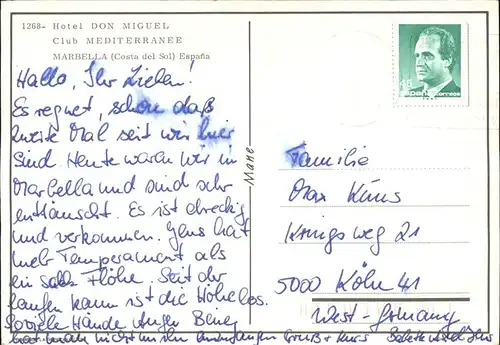 1268- Hotel DON MIGUEL
Club MEDITERRANEE
MARBELLA (Costa del Sol) España
Hallo, Ihr Lieben!
Es regnet, schon das
zweite Mal seit wir hier
sind. Heute waren wir in
Marbella und sind sehr
enttäuscht. Es ist dreckig
und verkommen. Jens hat
mehr Temperament als
ein Sack Flöhe. Seit der
laufen kann ist die Hölle los.
Soviele Hände Augen Beine
hat man nicht um ihn Gruß + Kuß
Mane
España correos
Familie
Max
Königsweg 21
5000 Köln 41
West-Germany